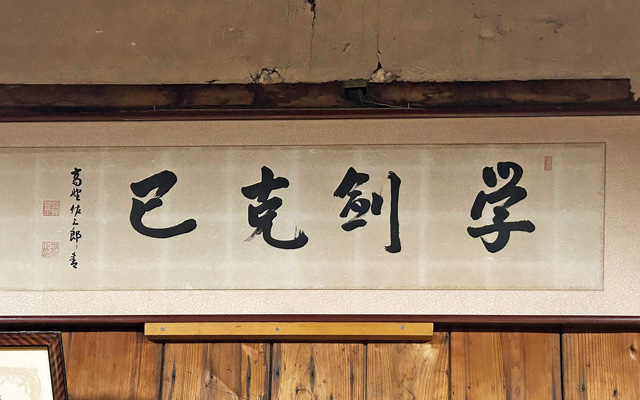 学剣克己
高野佐三郎書